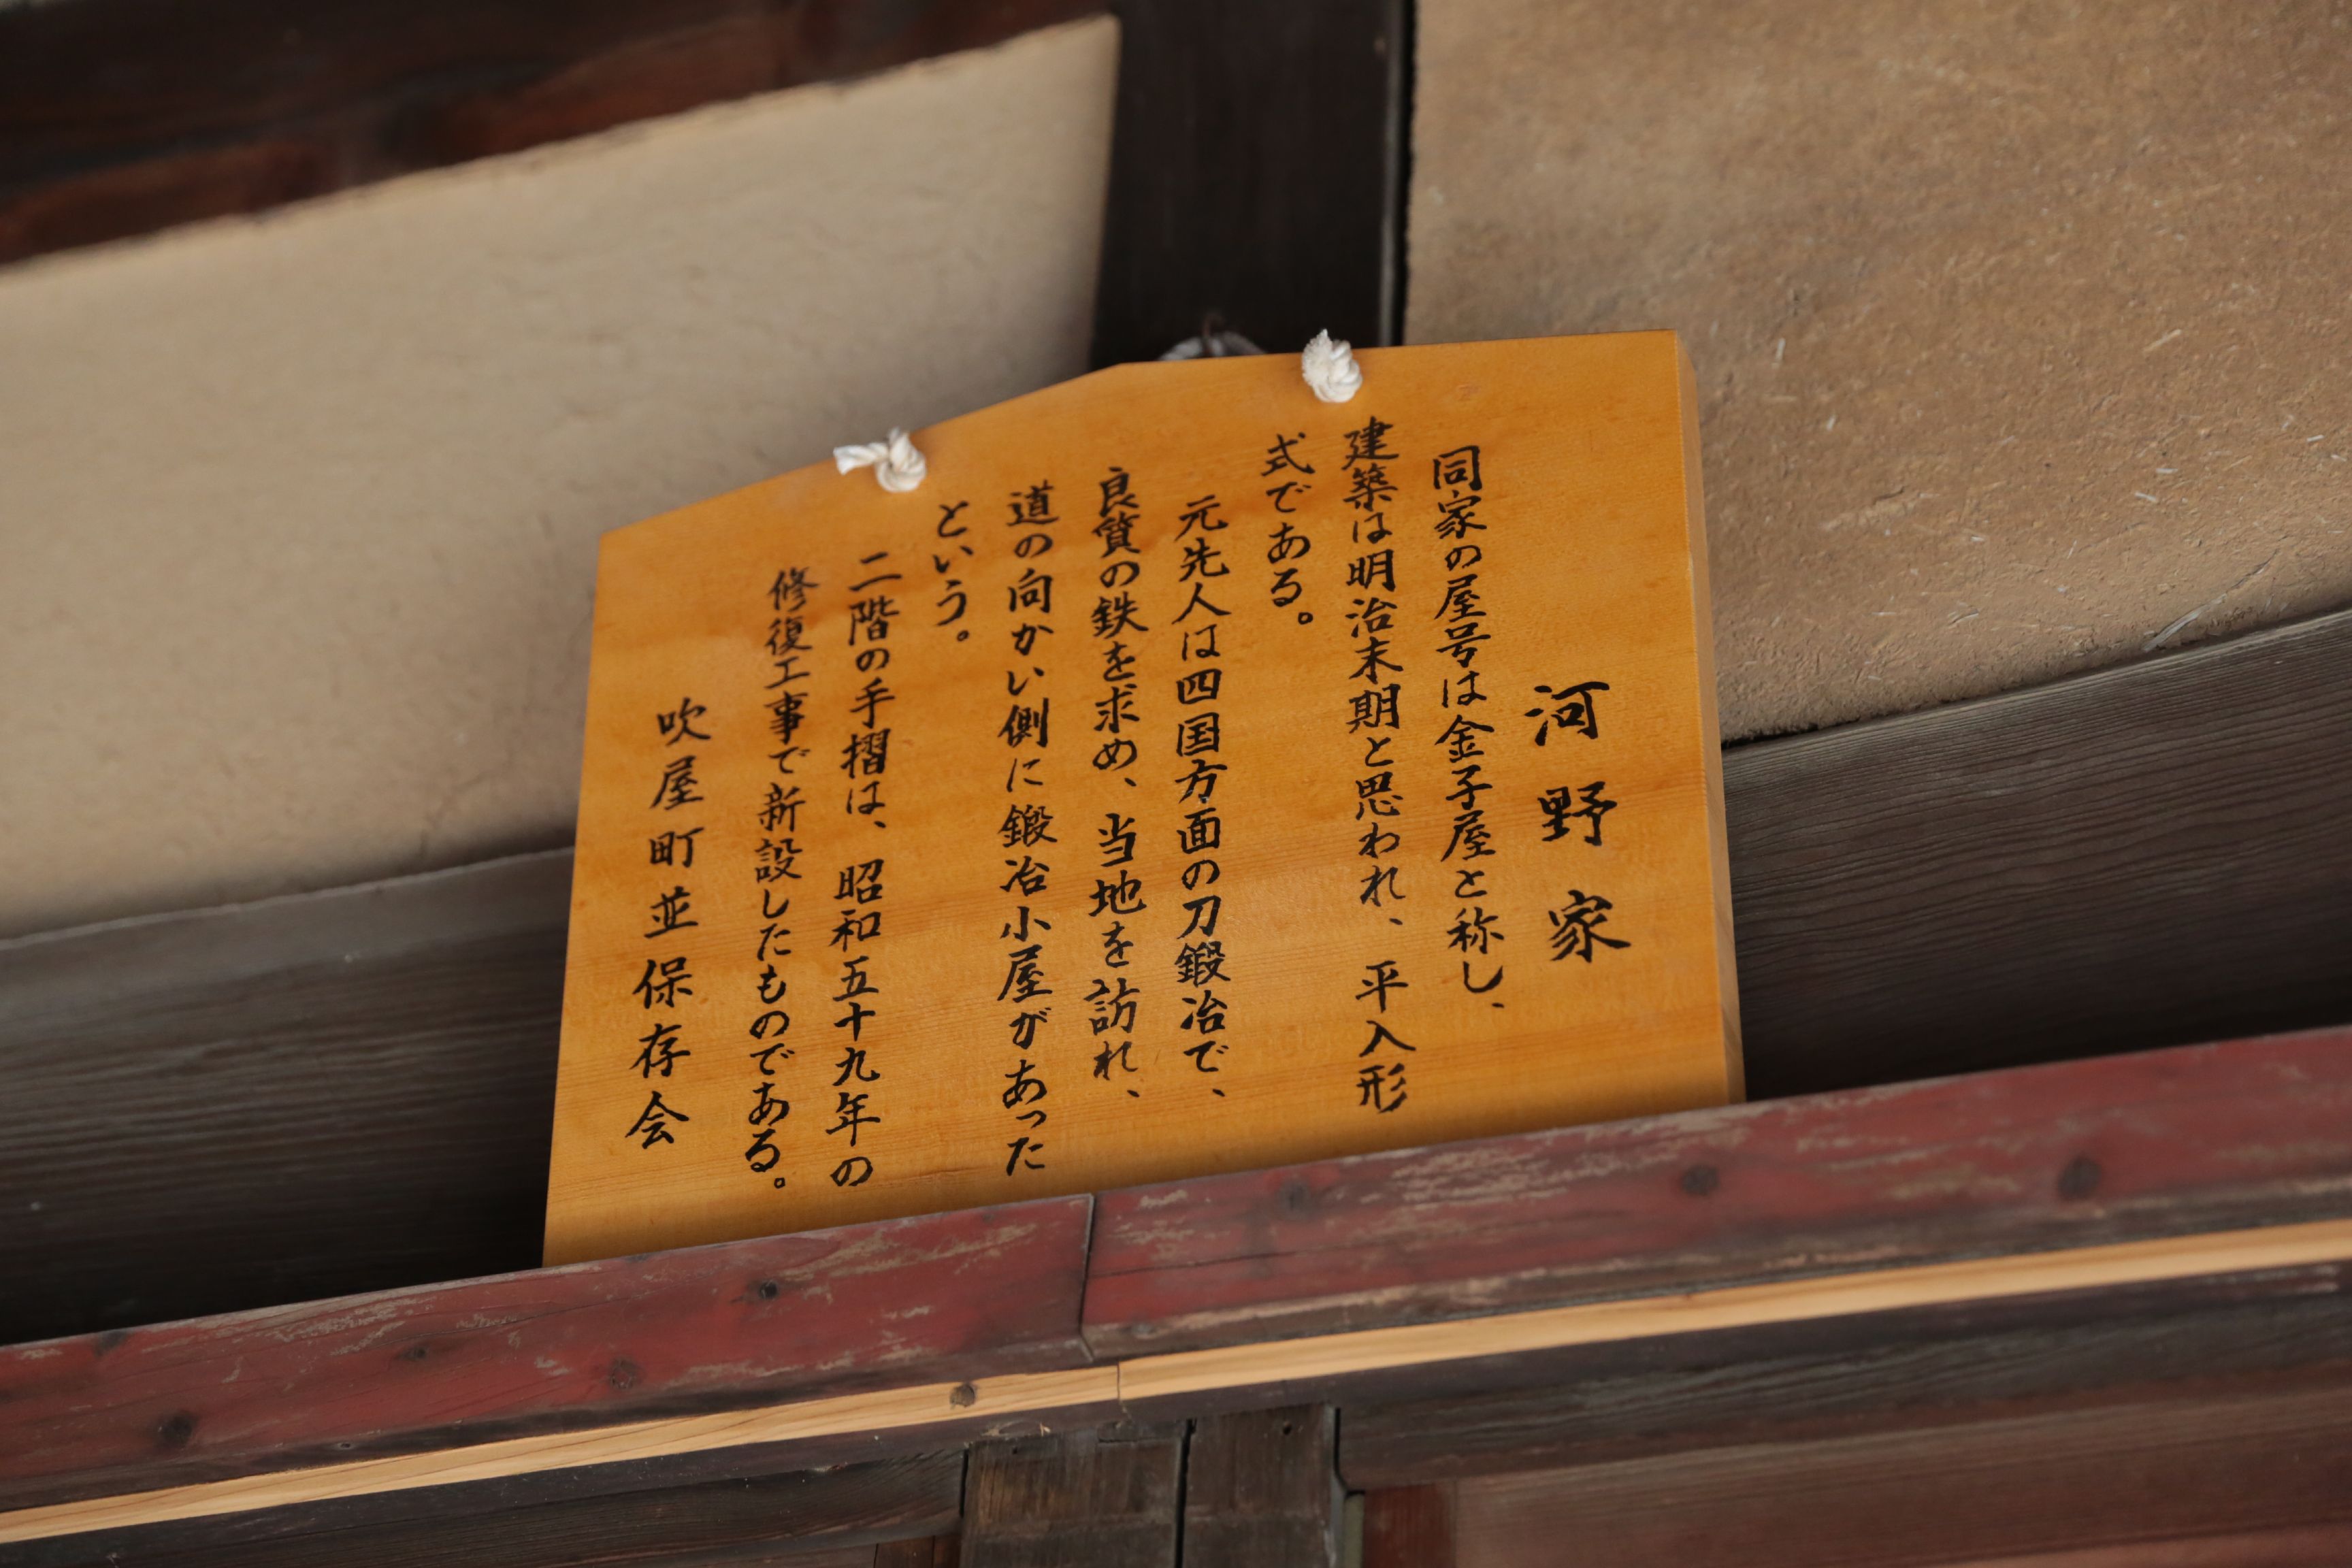 河野家
同家の屋号は金子屋と称し、
建築は明治末期と思われ、平入形
式である。
元先人は四国方面の刀鍛冶で、
良質の鉄を求め、当地を訪れ、
道の向かい側に鍛冶小屋があった
という。
二階の手摺は、昭和五十九年の
修復工事で新設したものである。
吹屋町並保存会